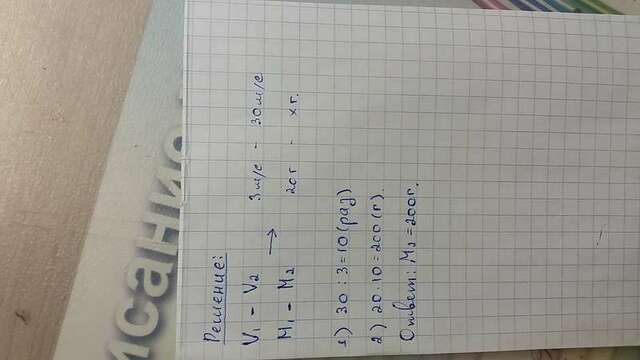 исание
Решение:
V₁ - V₂ → 3м/с - 30м/с
M₁ - M₂ 20г - xг.
1) 30 : 3 = 10 (раз)
2) 20 · 10 = 200 (г).
Ответ: M₂ = 200г.